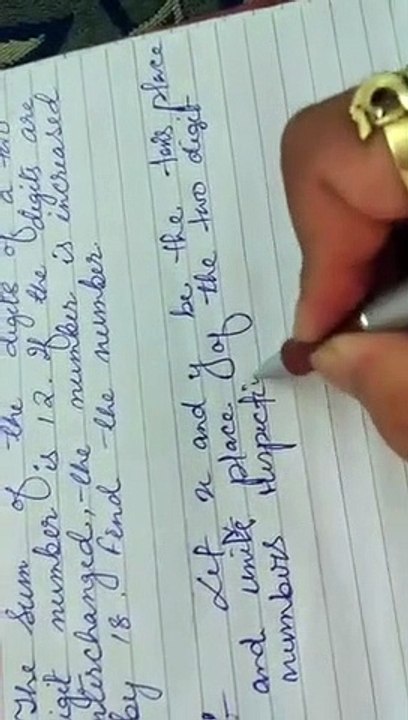 The Sum of the digits of a two
igit number is 12. If the digits are
nterschanged, the number is increased
by 18. Find the number.
Let x and y be the tens place
and units place of the two digit
numbers respecti